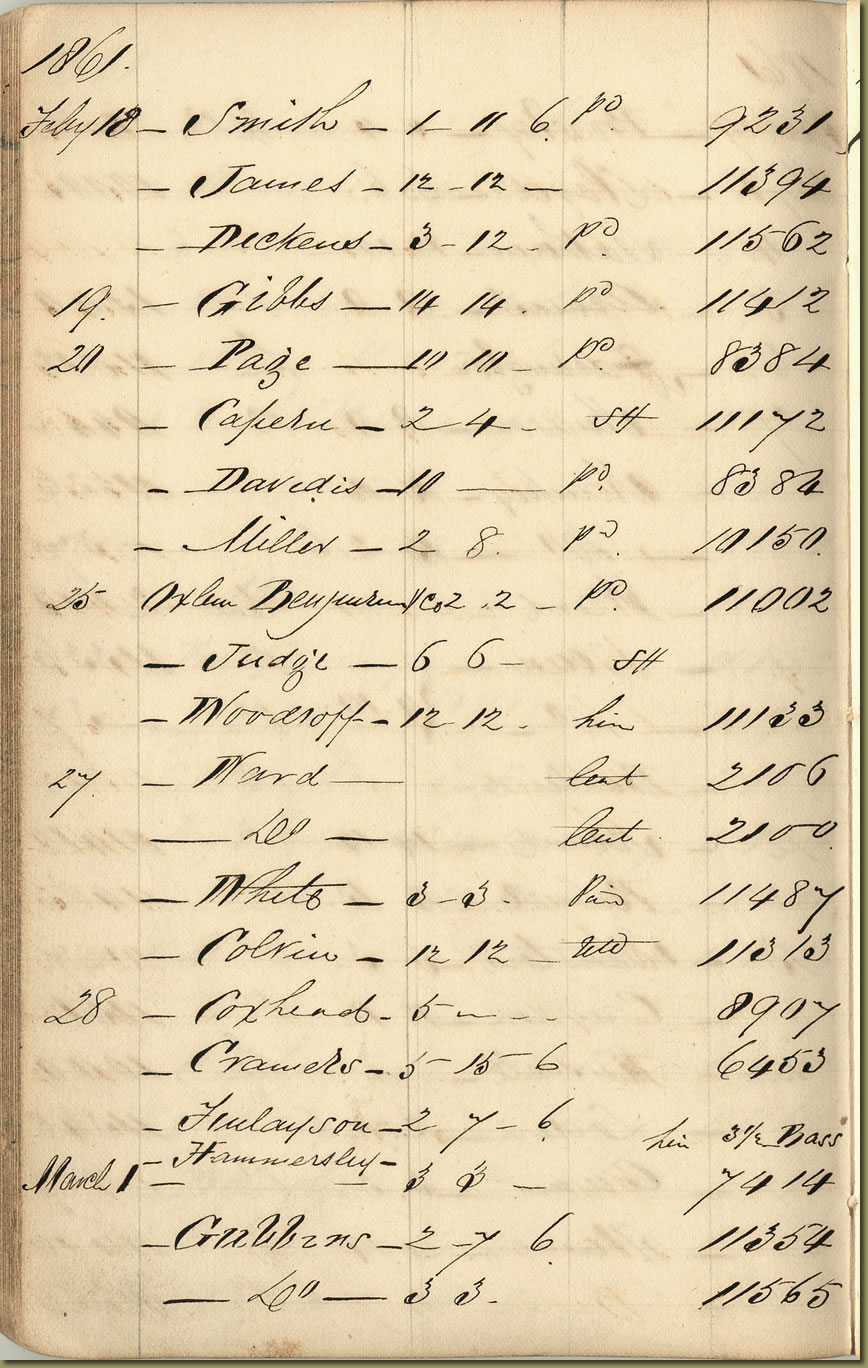 1861.
Feby 18 — Smith — 1 — 11 6. pd. 9231
— James — 12 - 12 — 11394
— Dickens — 3 - 12 - pd. 11562
19. — Gibbs — 14 14 . pd 11412
20 — Page — 10 10 - pd. 8384
— Capern — 2 4 - SH 11172
— Davidis — 10 — pd. 8384
— Miller — 2 8. pd. 10150.
25 Benjamin & Co 2 . 2 - pd. 11002
— Judge — 6 6 — SH
— Woodroff - 12 12 . hire 11133
27. — Ward — 2106
— Do — 2100.
— White — 3 - 3 . 11487
— Colvin — 12 12 — 11313
28 — Coxhead - 5 — - - 8907
— Cramers - 5 - 15 - 6 6453
— Finlayson — 2 7 - 6. hire 3 1/2 Bass
— Hammersley —
March 1 — — 3 3 — 7414
— Gubbins — 2 - 7 6. 11354
— Do — 3 3 - 11565